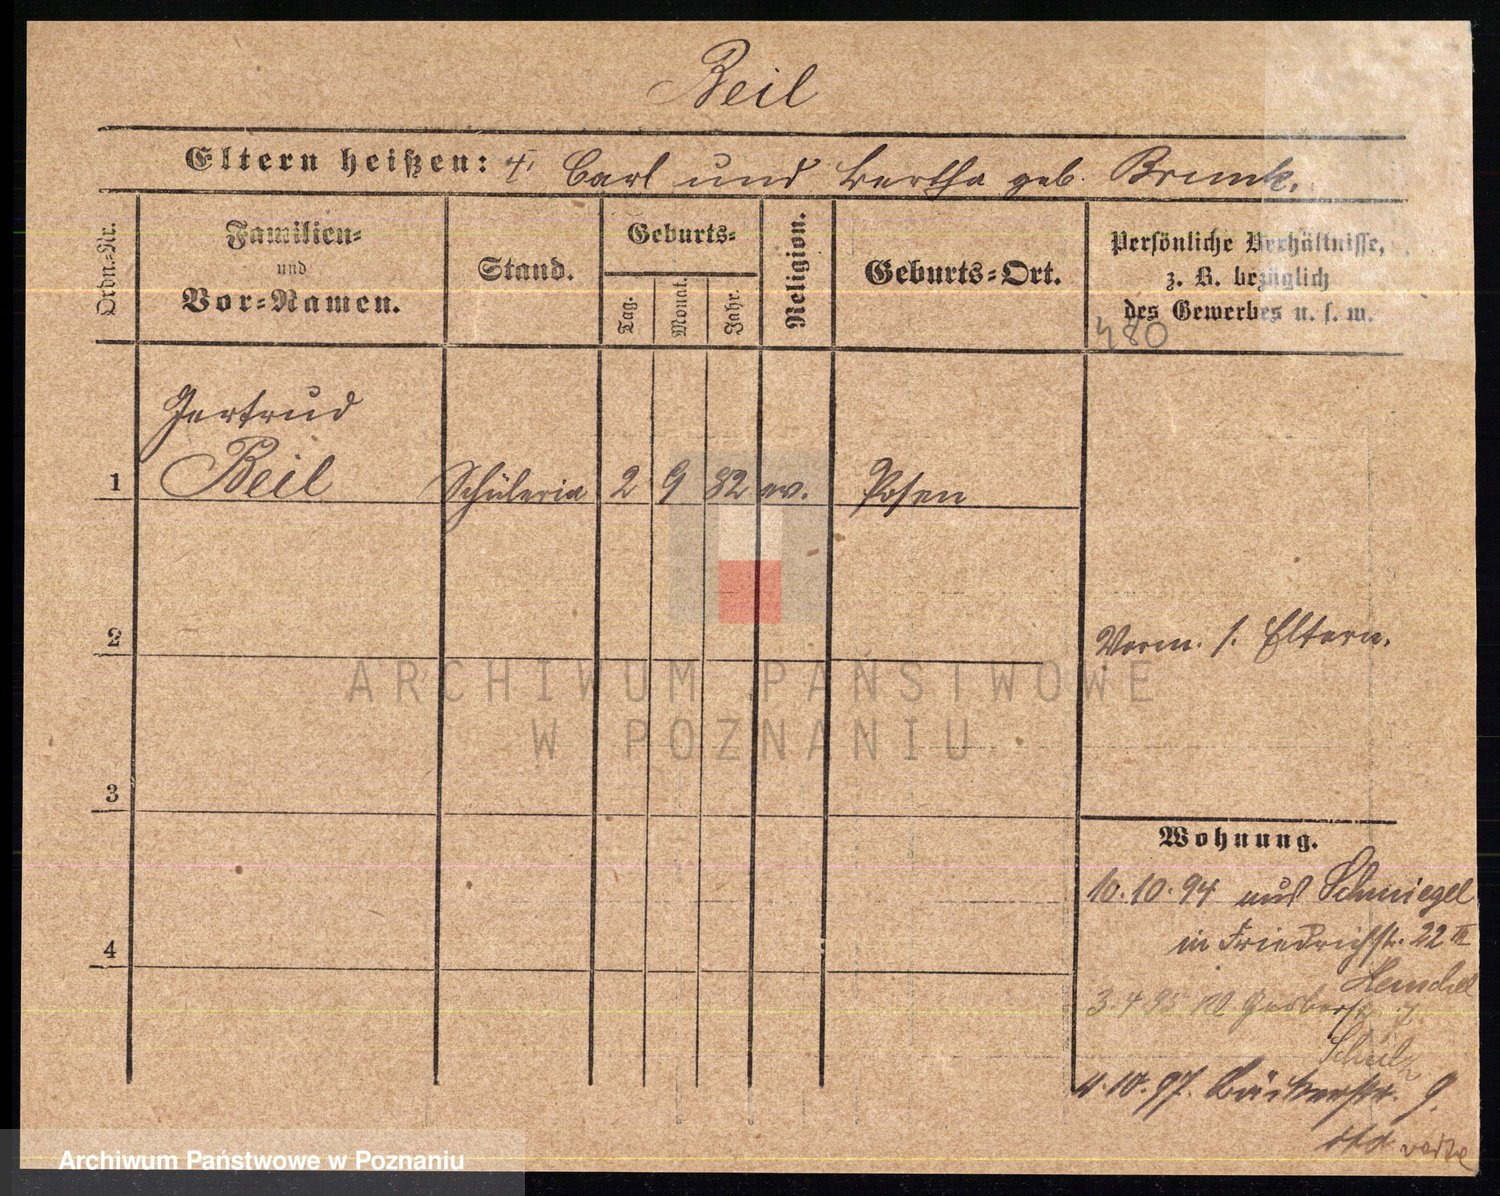 Beil
Eltern heißen: † Carl und Bertha geb. Brunk.
Ordn.-Nr.
Familien-
und
Vor-Namen.
Stand.
Geburts-
Tag.
Monat.
Jahr.
Religion.
Geburts-Ort.
Persönliche Verhältnisse,
z. B. bezüglich
des Gewerbes u. s. w.
480
Gertrud
1 Beil Schülerin 2 9 82 ev. Posen
2
Vorm. s. Eltern.
3
4
Wohnung.
10.10.94 aus Schmiegel
in Friedrichstr. 22 III
Henschel
3.4.95 7.
Schulz
4.10.97. Bäckerstr. 9.
verte
ARCHIWUM PAŃSTWOWE
W POZNANIU
Archiwum Państwowe w Poznaniu